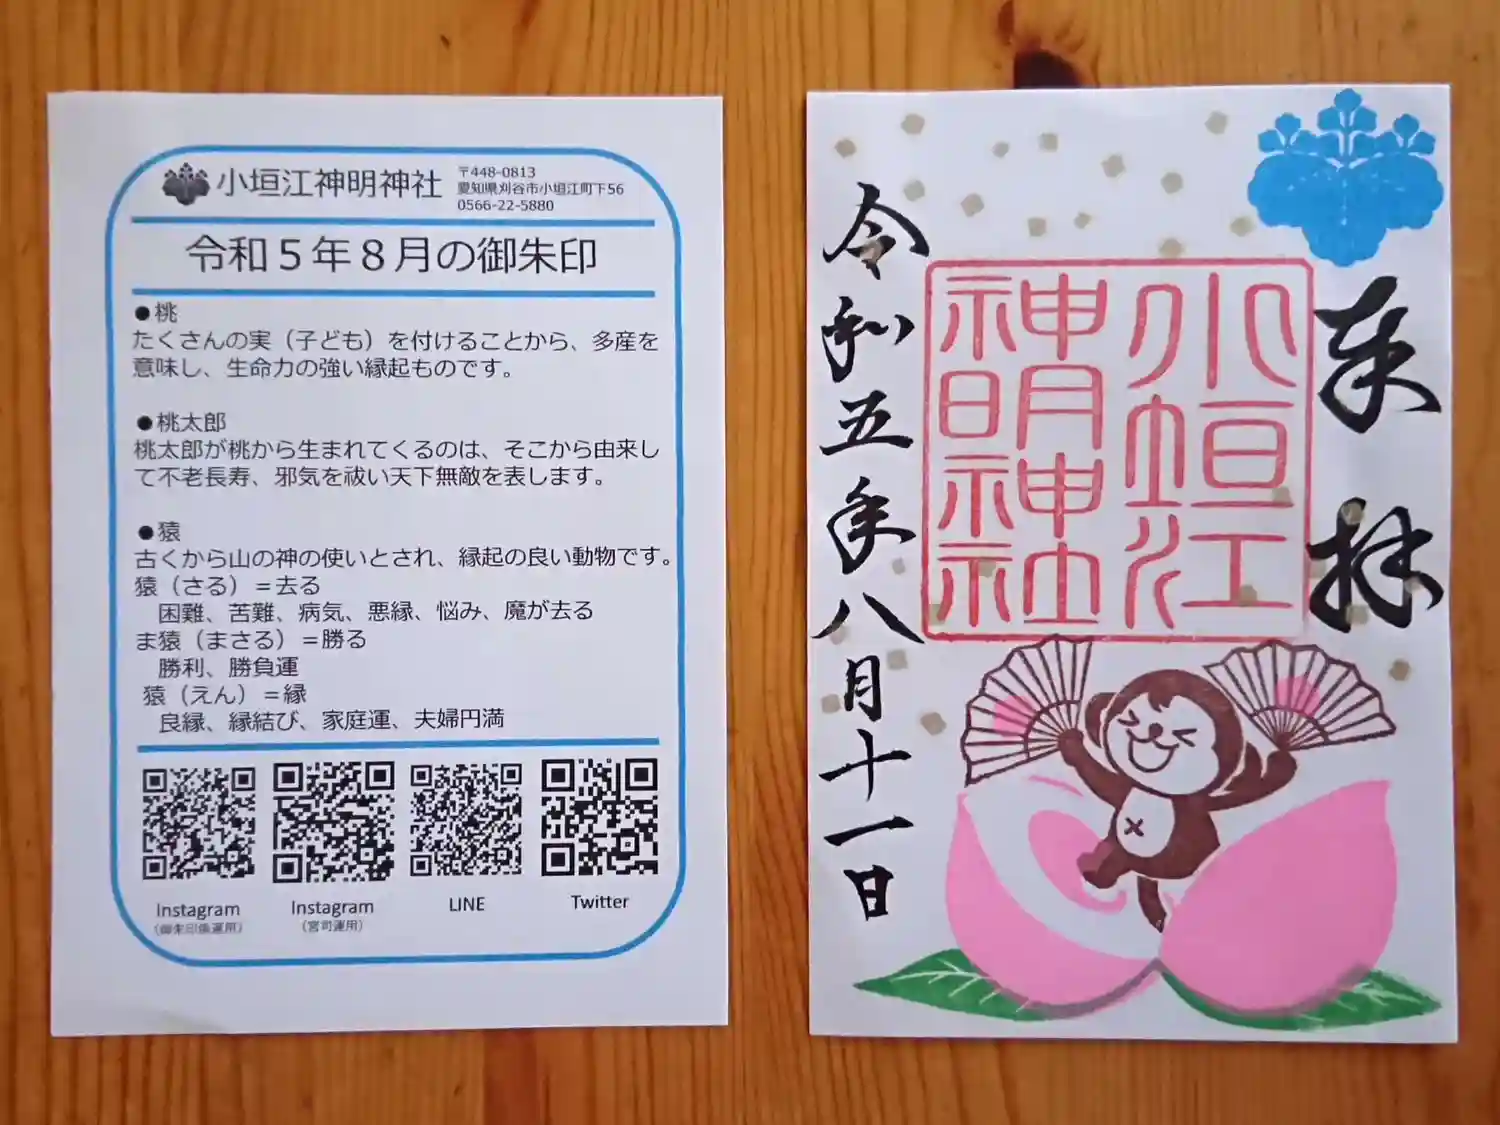 小垣江神明神社
〒448-0813
愛知県刈谷市小垣江町下56
0566-22-5880
令和5年8月の御朱印
●桃
たくさんの実（子ども）を付けることから、多産を
意味し、生命力の強い縁起ものです。
●桃太郎
桃太郎が桃から生まれてくるのは、そこから由来し
て不老長寿、邪気を祓い天下無敵を表します。
●猿
古くから山の神の使いとされ、縁起の良い動物です。
猿（さる）＝去る
困難、苦難、病気、悪縁、悩み、魔が去る
ま猿（まさる）＝勝る
勝利、勝負運
猿（えん）＝縁
良縁、縁結び、家庭運、夫婦円満
Instagram
（御朱印係運用）
Instagram
（宮司運用）
LINE
Twitter
奉拝
小垣江
神明神社
令和五年八月十一日